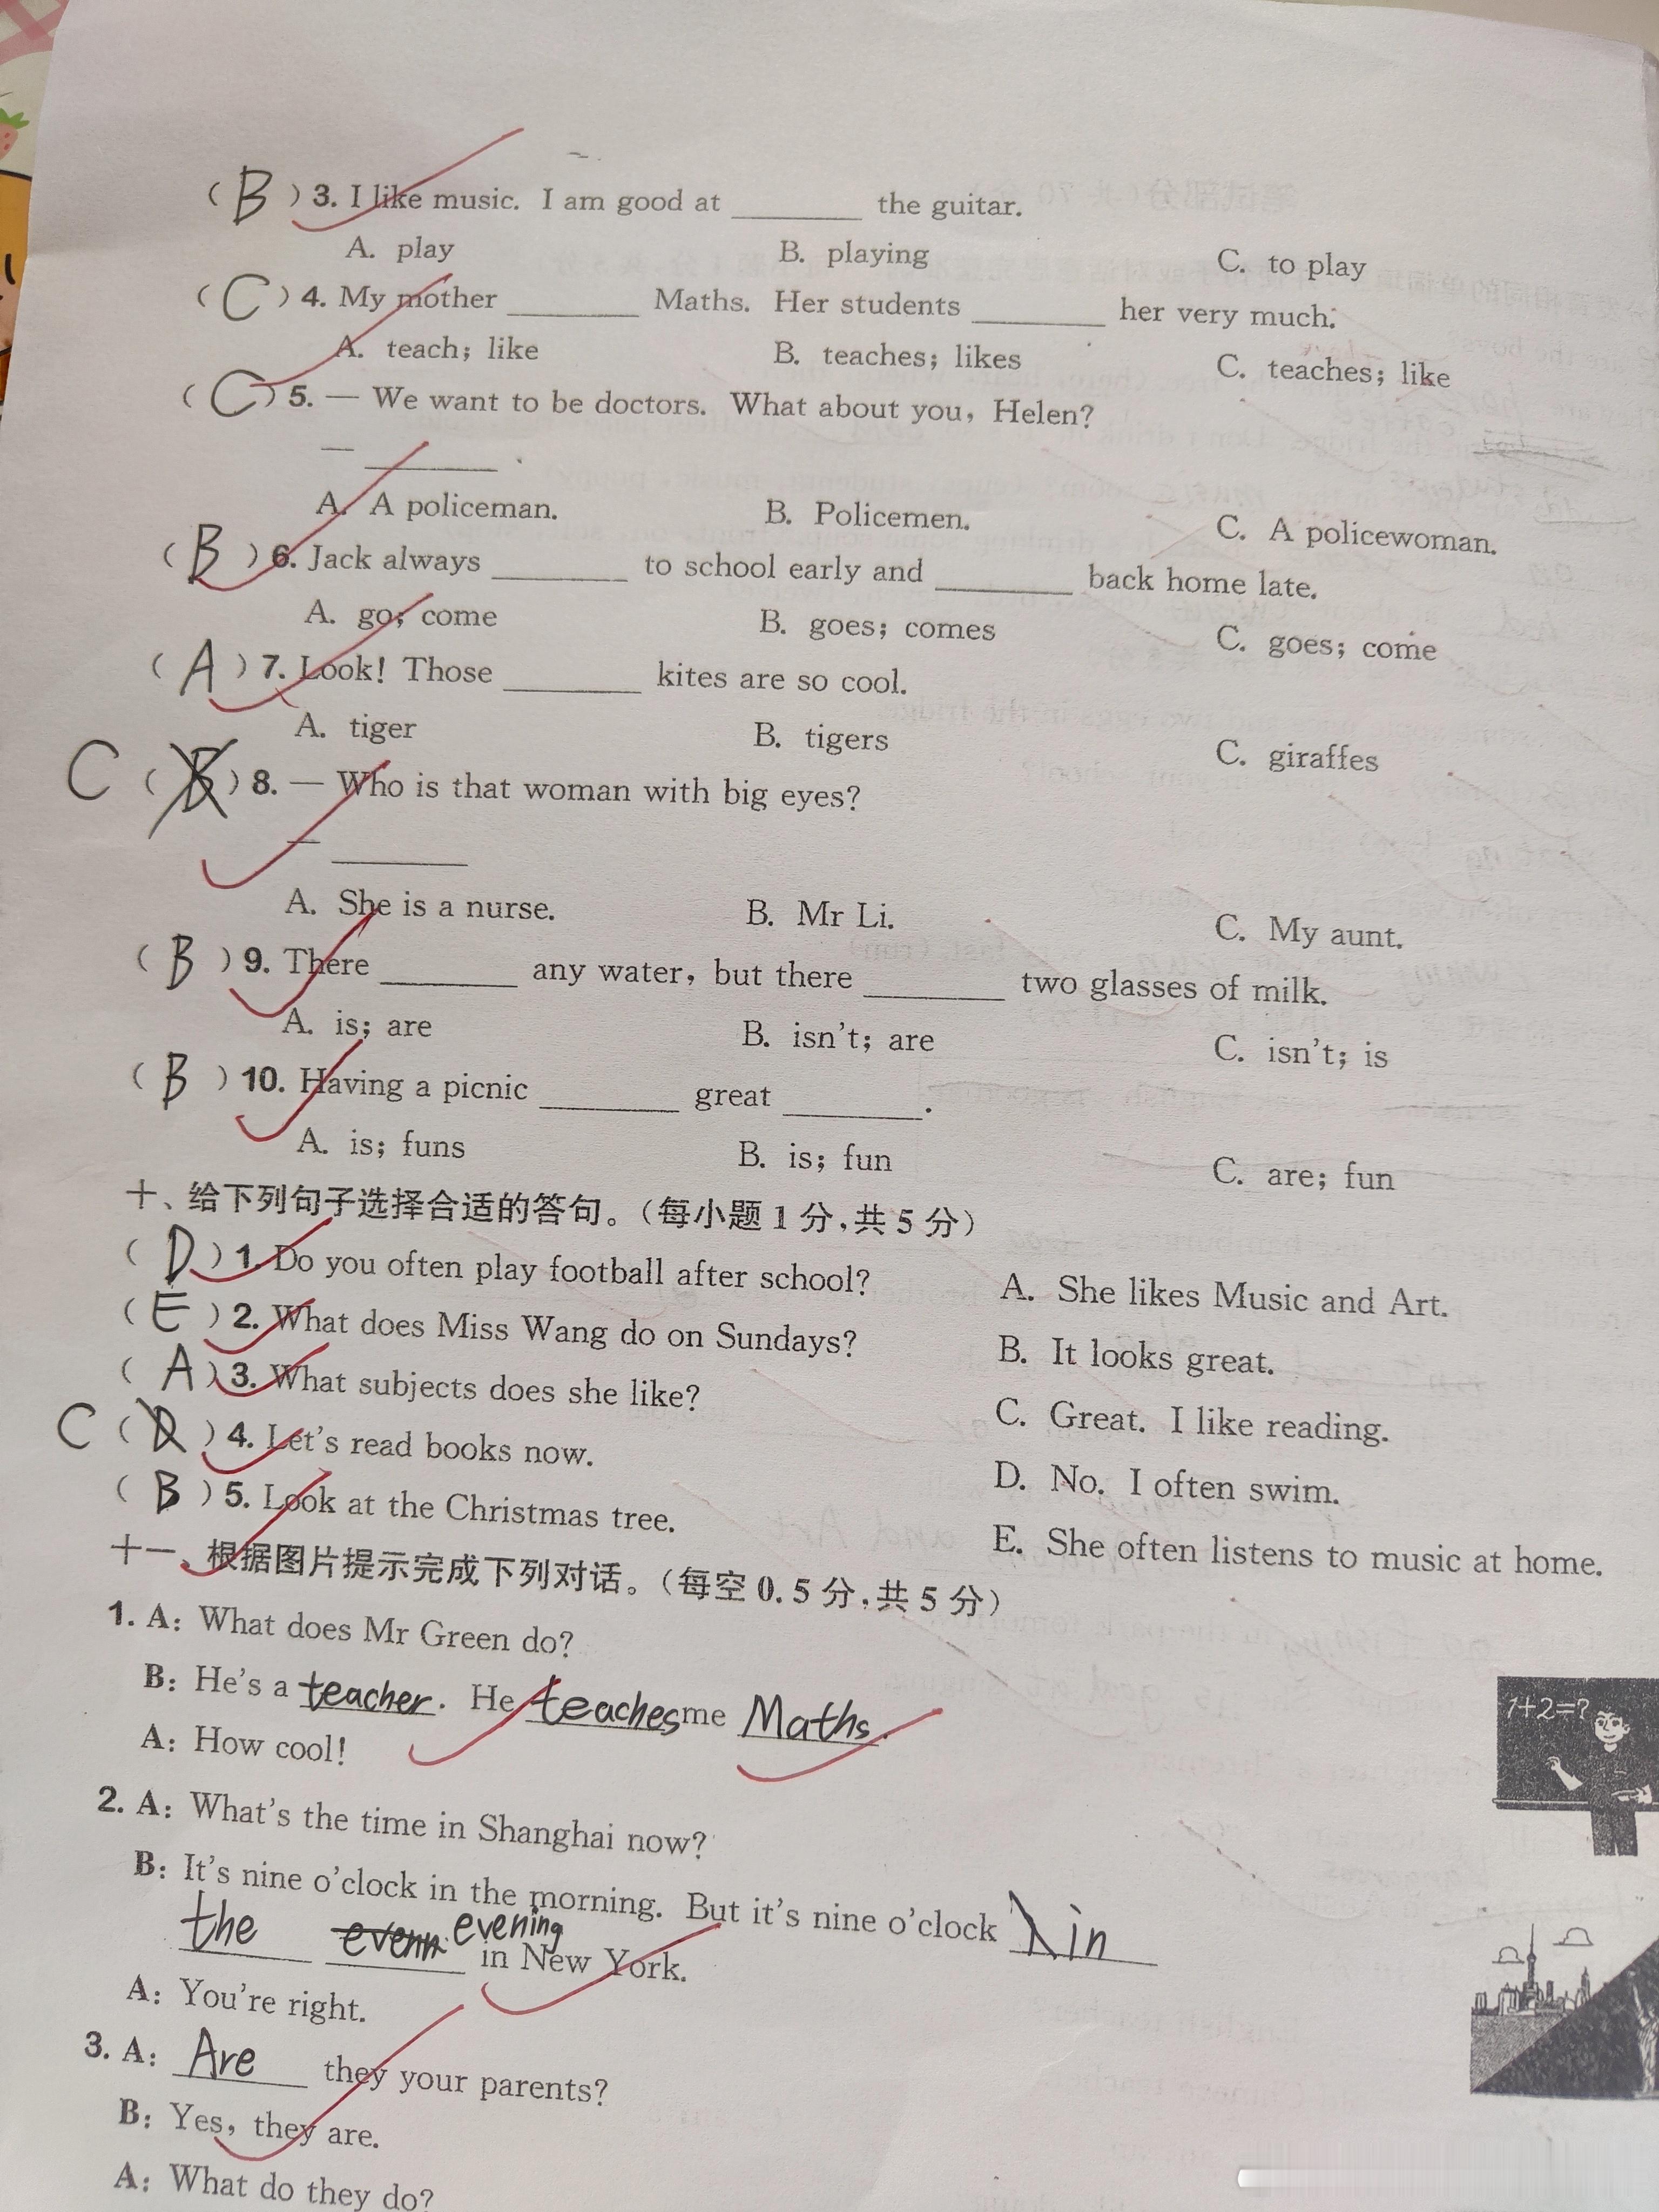 (B)3. I like music. I am good at ________ the guitar.
A. play B. playing C. to play
(C)4. My mother ________ Maths. Her students ________ her very much.
A. teach; like B. teaches; likes C. teaches; like
(C)5. — We want to be doctors. What about you, Helen?
— ________
A. A policeman. B. Policemen. C. A policewoman.
(B)6. Jack always ________ to school early and ________ back home late.
A. go; come B. goes; comes C. goes; come
(A)7. Look! Those ________ kites are so cool.
A. tiger B. tigers C. giraffes
C (B)8. — Who is that woman with big eyes?
— ________
A. She is a nurse. B. Mr Li. C. My aunt.
(B)9. There ________ any water, but there ________ two glasses of milk.
A. is; are B. isn't; are C. isn't; is
(B)10. Having a picnic ________ great ________.
A. is; funs B. is; fun C. are; fun
十、给下列句子选择合适的答句。(每小题1分,共5分)
(D)1. Do you often play football after school? A. She likes Music and Art.
(E)2. What does Miss Wang do on Sundays? B. It looks great.
(A)3. What subjects does she like? C. Great. I like reading.
C (D)4. Let's read books now. D. No. I often swim.
(B)5. Look at the Christmas tree. E. She often listens to music at home.
十一、根据图片提示完成下列对话。(每空0.5分,共5分)
1. A: What does Mr Green do?
B: He's a teacher. He teaches me Maths.
A: How cool!
1+2=?
2. A: What's the time in Shanghai now?
B: It's nine o'clock in the morning. But it's nine o'clock in
the evenn evening in New York.
A: You're right.
3. A: Are they your parents?
B: Yes, they are.
A: What do they do?